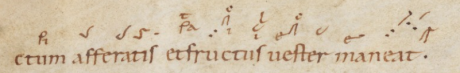 ctum afferatis et fructus uester maneat.